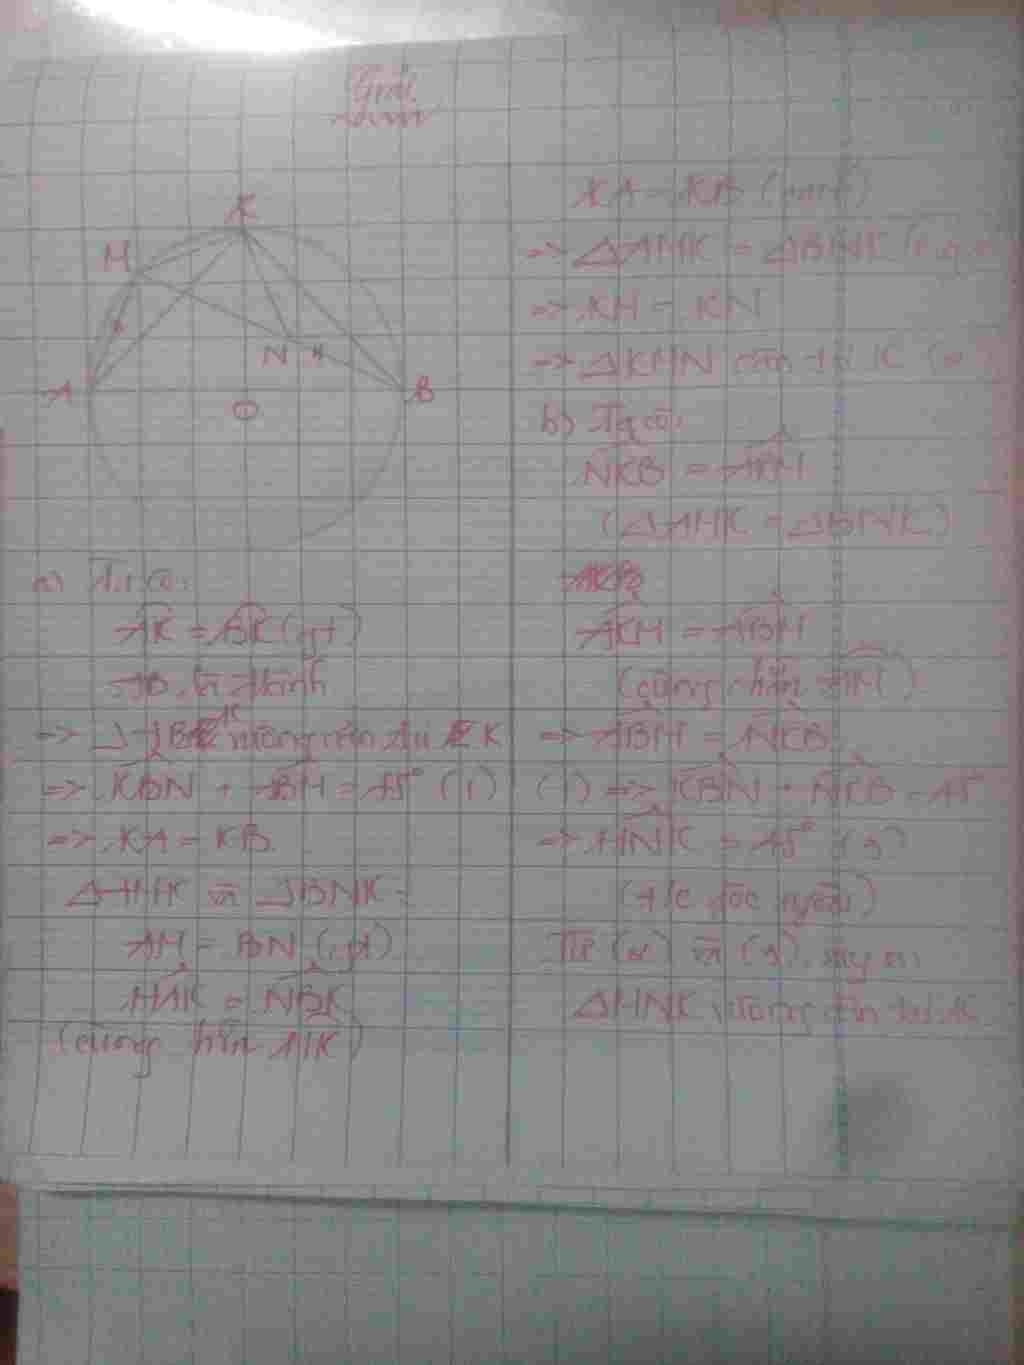 Giải
K
M
N
A
O
B
a) Ta có:
AK = BK (gt)
AB là
=> vuông cân tại K
=> KBN + ABM = 45° (1)
=> KA = KB
ΔAMK và ΔBNK:
AM = BN (gt)
MAK = NBK
(cùng chắn MK)
KA = KB (cmt)
=> ΔAMK = ΔBNK
=> KM = KN
=> ΔKMN cân tại K
b) Ta có:
NKB = AKM
(ΔAMK = ΔBNK)
AKM = ABM
(cùng chắn AM)
=> ABM = NKB
(1) => KBN + NKB = 45°
=> MNK = 45°
(t/c góc ngoài)
Từ và suy ra:
ΔMNK vuông cân tại K